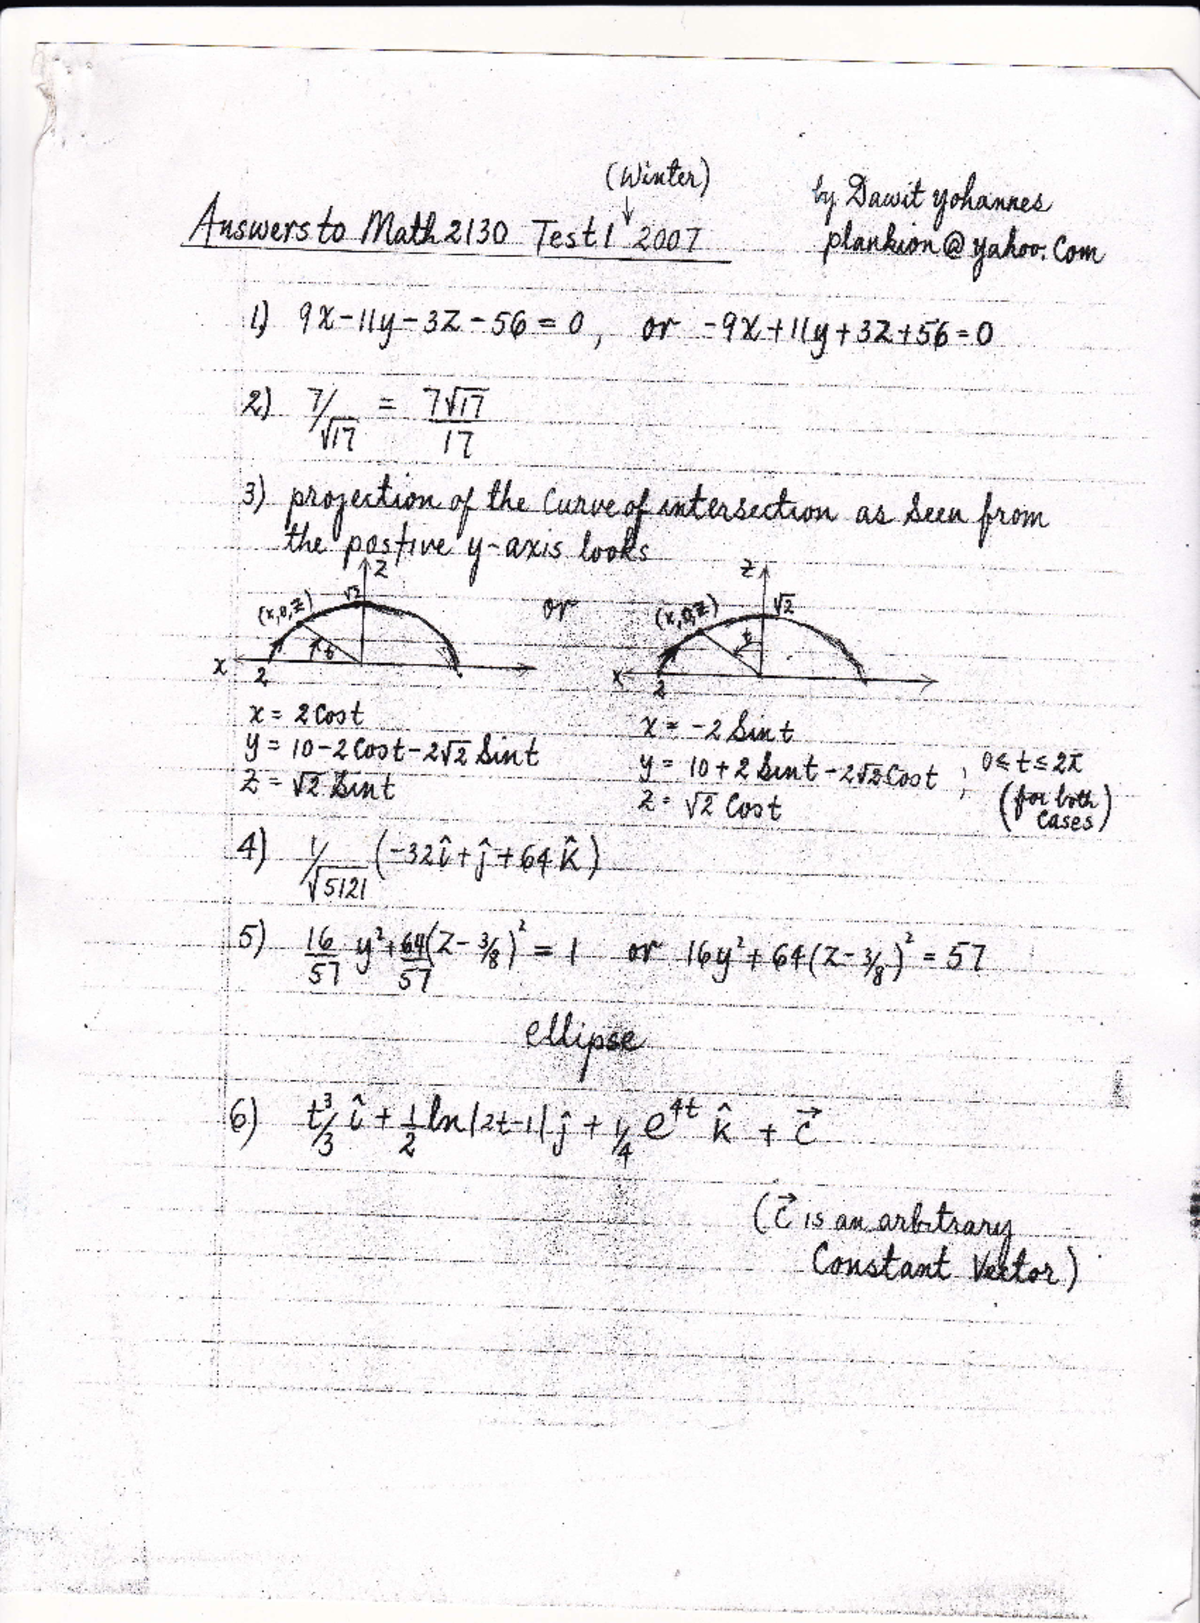 (Winter)
by Dawit Yohannes
Answers to Math 2130 Test 1 ↓ 2007
plankion@yahoo.Com
1) 9x-11y-3z-56=0, or -9x+11y+3z+56=0
2) 7/√17 = 7√17/17
3) projection of the Curve of intersection as seen from
the postive y-axis looks
z √2 (x,0,z) t x 2
or
z √2 (x,0,z) t x 2
x = 2 Cost
y = 10-2Cost-2√2 Sint
z = √2 Sint
x = -2 Sint
y = 10+2 Sint-2√2Cost ; 0≤t≤2π
z = √2 Cost
(for both
Cases)
4) 1/√5121 (-32î+ĵ+64k̂)
5) 16/57 y²+64/57(z-3/8)² = 1 or 16y²+64(z-3/8)² = 57
ellipse
6) t³/3 î + 1/2 ln|2t-1|ĵ + 1/4 e⁴ᵗ k̂ + c⃗
(c⃗ is an arbitrary
Constant Vector)